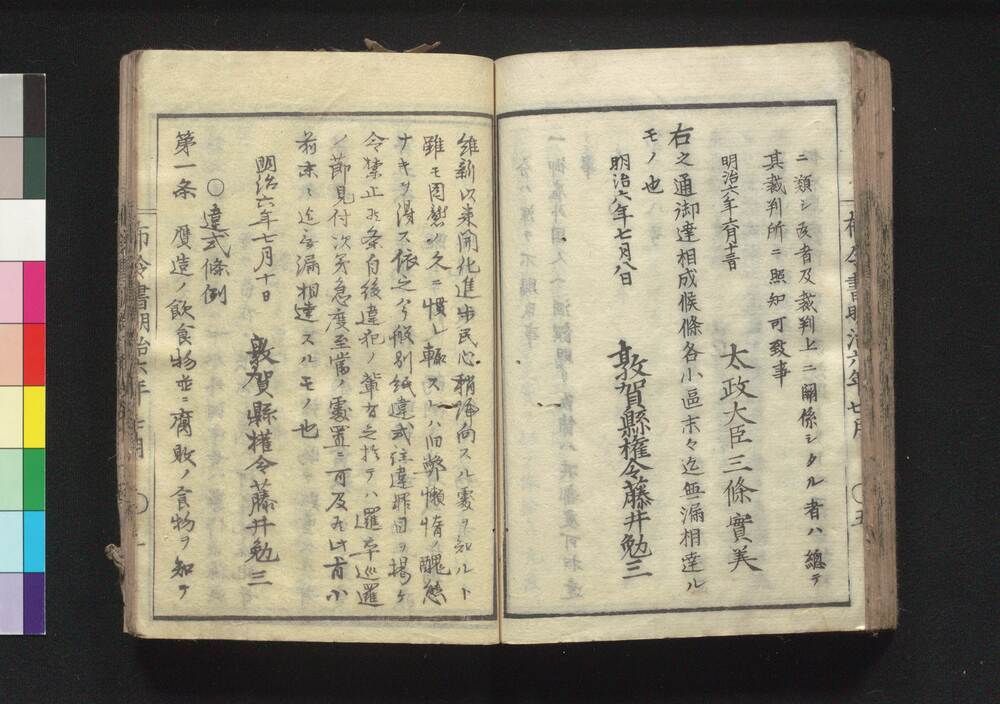 ニ類シ候者及裁判上ニ關係シタル者ハ總テ
其裁判所ニ照知可致事
明治六年六月
太政大臣三條實美
右之通御達相成候條各小區末々迄無漏相達ル
モノ也
明治六年七月八日
敦賀縣權令藤井勉三
維新以来開化進歩民心稍歸向スル處ヲ知ルト
雖モ因襲ノ久ニ慣レ輙スレハ旧弊懶惰ノ醜態
ナキヲ得ス依之今般別紙違式詿違罪目ヲ掲ケ
令禁止候条自後違犯ノ輩有之於テハ邏卒巡邏
ノ節見付次第急度至當ノ處置ニ可及候此旨小
前末々迄無漏相達スルモノ也
明治六年七月十日
敦賀縣權令藤井勉三
○違式條例
第一条 贋造ノ飲食物並ニ腐敗ノ食物ヲ知テ
布令書明治六年七月
布令書明治六年七月 ○五